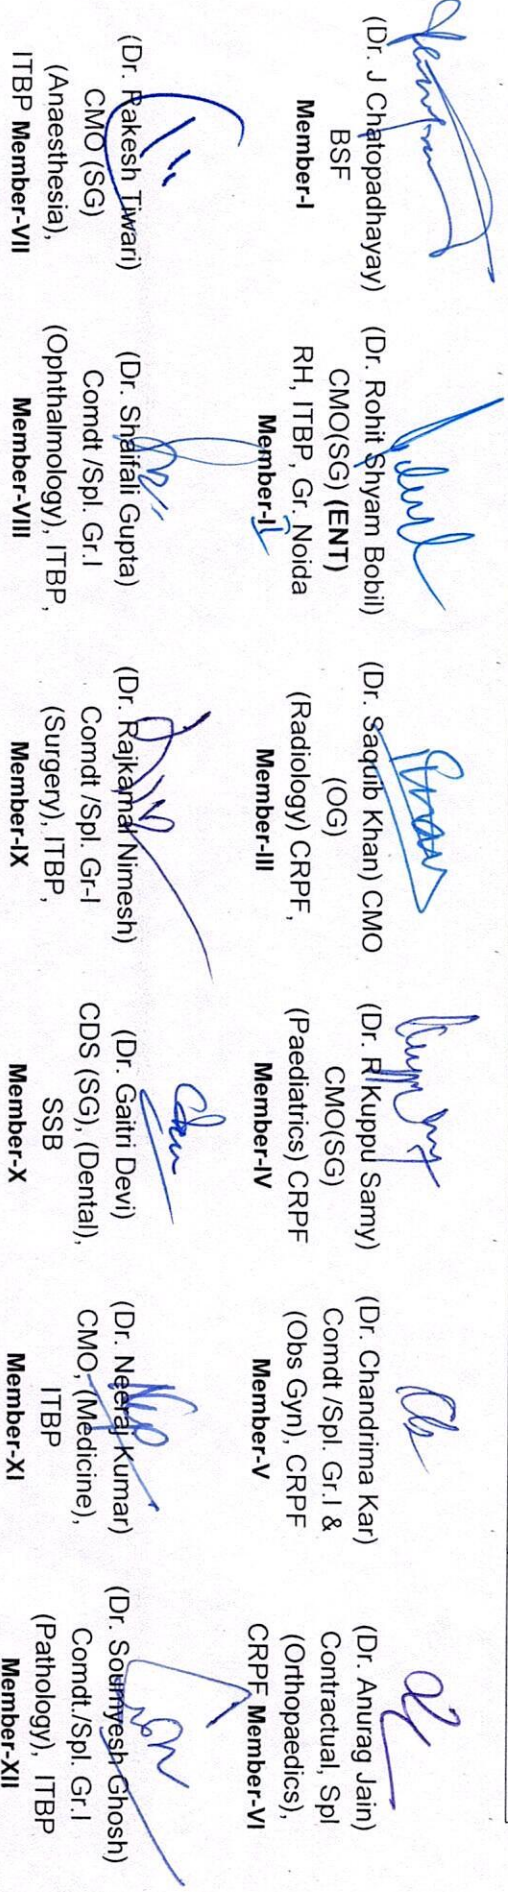 (Dr. J Chatopadhayay)
BSF
Member-I
(Dr. Rohit Shyam Bobil)
CMO(SG) (ENT)
RH, ITBP , Gr. Noida
Member-II
(Dr. Saquib Khan) CMO
(OG)
(Radiology) CRPF,
Member-III
(Dr. R Kuppu Samy)
CMO(SG)
(Paediatrics) CRPF
Member-IV
(Dr. Chandrima Kar)
Comdt /Spl. Gr.I &
(Obs Gyn), CRPF
Member-V
(Dr. Anurag Jain)
Contractual, Spl
(Orthopaedics),
CRPF Member-VI
(Dr. Rakesh Tiwari)
CMO (SG)
(Anaesthesia),
ITBP Member-VII
(Dr. Shaifali Gupta)
Comdt /Spl. Gr.I
(Ophthalmology), ITBP,
Member-VIII
(Dr. Rajkamal Nimesh)
Comdt /Spl. Gr-I
(Surgery), ITBP,
Member-IX
(Dr. Gaitri Devi)
CDS (SG), (Dental),
SSB
Member-X
(Dr. Neeraj Kumar)
CMO, (Medicine),
ITBP
Member-XI
(Dr. Soumyesh Ghosh)
Comdt./Spl. Gr.I
(Pathology), ITBP
Member-XII